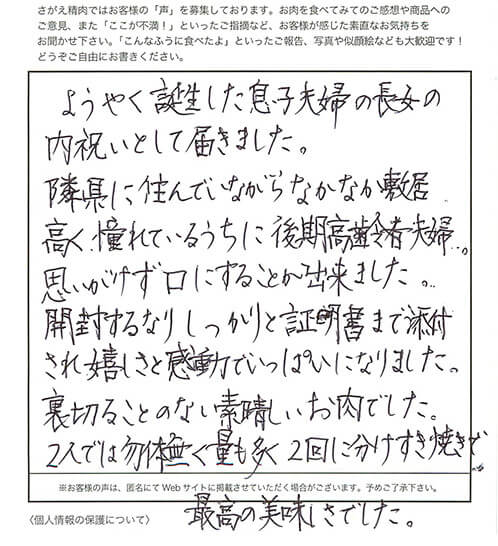 さがえ精肉ではお客様の「声」を募集しております。お肉を食べてみてのご感想や商品への
ご意見、また「ここが不満！」といったご指摘など、お客様が感じた素直なお気持ちを
お聞かせ下さい。「こんなふうに食べたよ」といったご報告、写真や似顔絵なども大歓迎です！
どうぞご自由にお書きください。
ようやく誕生した息子夫婦の長女の
内祝いとして届きました。
隣県に住んでいながらなかなか敷居
高く、憧れているうちに後期高齢者夫婦…。
思いがけず口にすることが出来ました。
開封するなりしっかりと証明書まで添付
され嬉しさと感動でいっぱいになりました。
裏切ることのない素晴しいお肉でした。
2人では勿体無く量も多く2回に分けすき焼きで
※お客様の声は、匿名にてWebサイトに掲載させていただく場合がございます。予めご了承下さい。
最高の美味しさでした。
〈個人情報の保護について〉